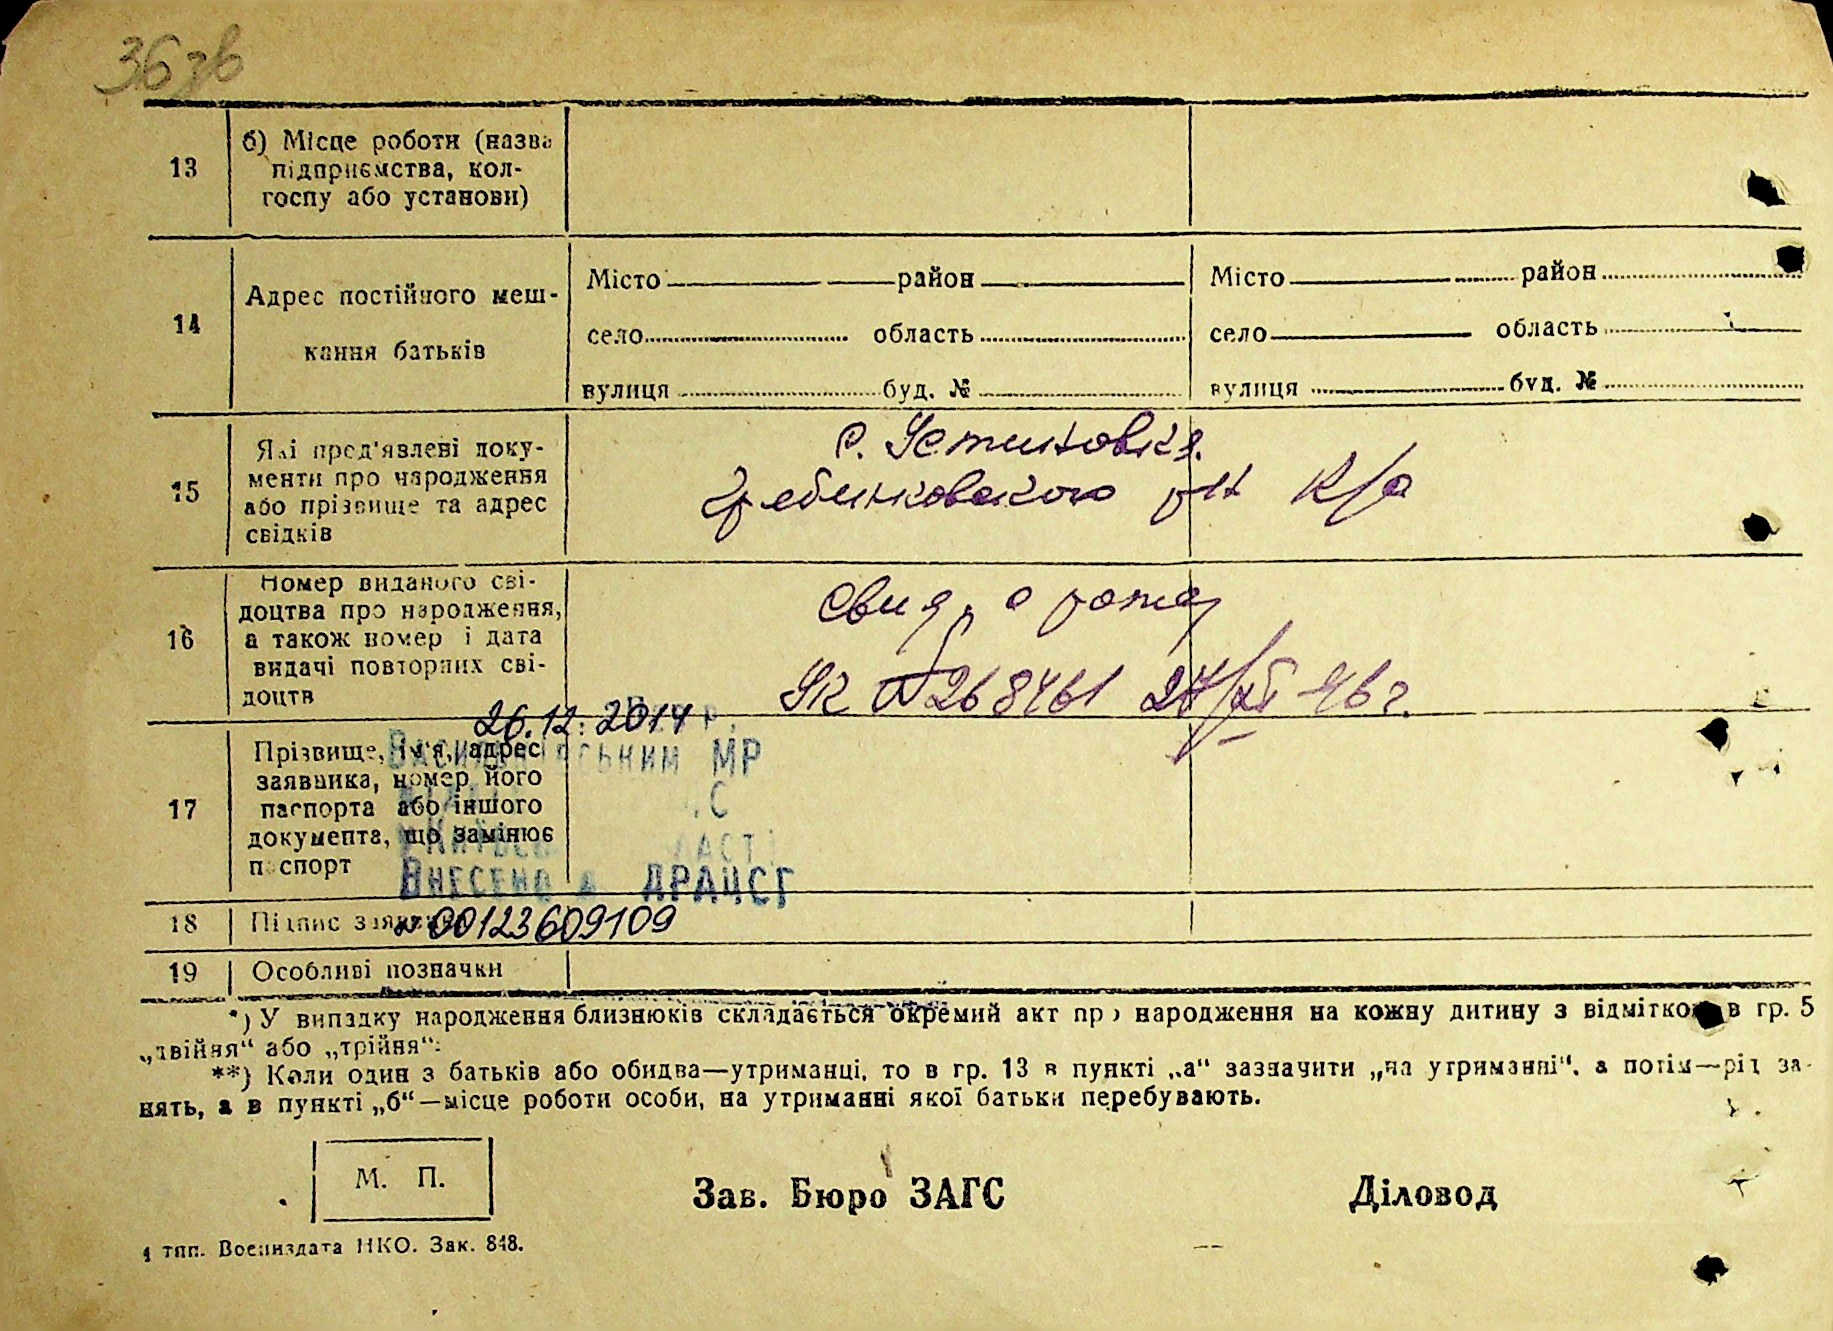 36 зв
13
б) Місце роботи (назва
підприємства, кол-
госпу або установи)
14
Адрес постійного меш-
кання батьків
Місто район
село область
вулиця буд. №
Місто район
село область
вулиця буд. №
15
Які пред'явлені доку-
менти про народження
або прізвище та адрес
свідків
с. Устиновка
Гребинковского р-н К/о
16
Номер виданого сві-
доцтва про народження,
а також номер і дата
видачі повторних сві-
доцтв
Свид. о рожд
УК № 268461 27/XI 46 г.
26.12.2014 р.
17
Прізвище, ім'я, адрес
заявника, номер його
паспорта або іншого
документа, що замінює
паспорт
Васильківським МР
Внесено до ДРАЦСГ
18
Підпис заявника
№ 00123609109
19
Особливі позначки
*) У випадку народження близнюків складається окремий акт про народження на кожну дитину з відміткою в гр. 5
„двійня“ або „трійня“.
**) Коли один з батьків або обидва—утриманці, то в гр. 13 в пункті „а“ зазначити „на утриманні“, а потім—рід за-
нять, а в пункті „б“—місце роботи особи, на утриманні якої батьки перебувають.
М. П.
Зав. Бюро ЗАГС
Діловод
1 тип. Воениздата НКО. Зак. 848.